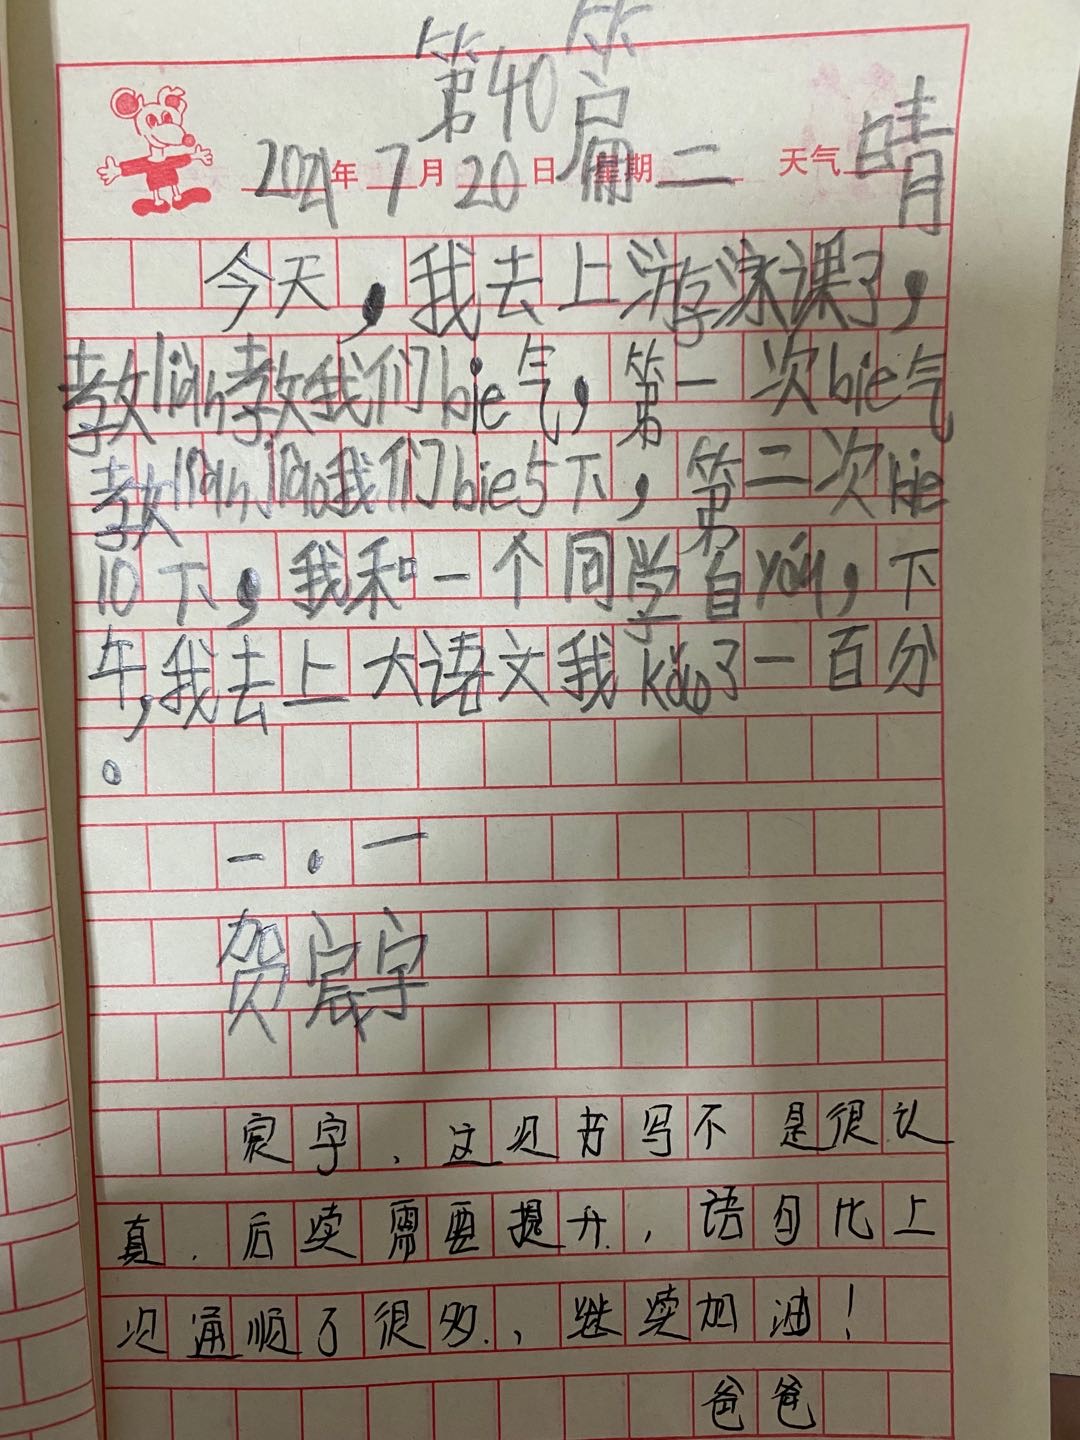 第40篇
2021年7月20日 星期二 天气晴
今天，我去上游泳课了，
教liàn教我们bie气，第一次bie气
教liàn jiao我们bie5下，第二次bie
10下，我和一个同学自yóu，下
午，我去上大语文我kǎo了一百分
。
一。一
贺宸宇
宸宇，这次书写不是很认
真．后续需要提升．，语句比上
次通顺了很多．，继续加油！
爸爸